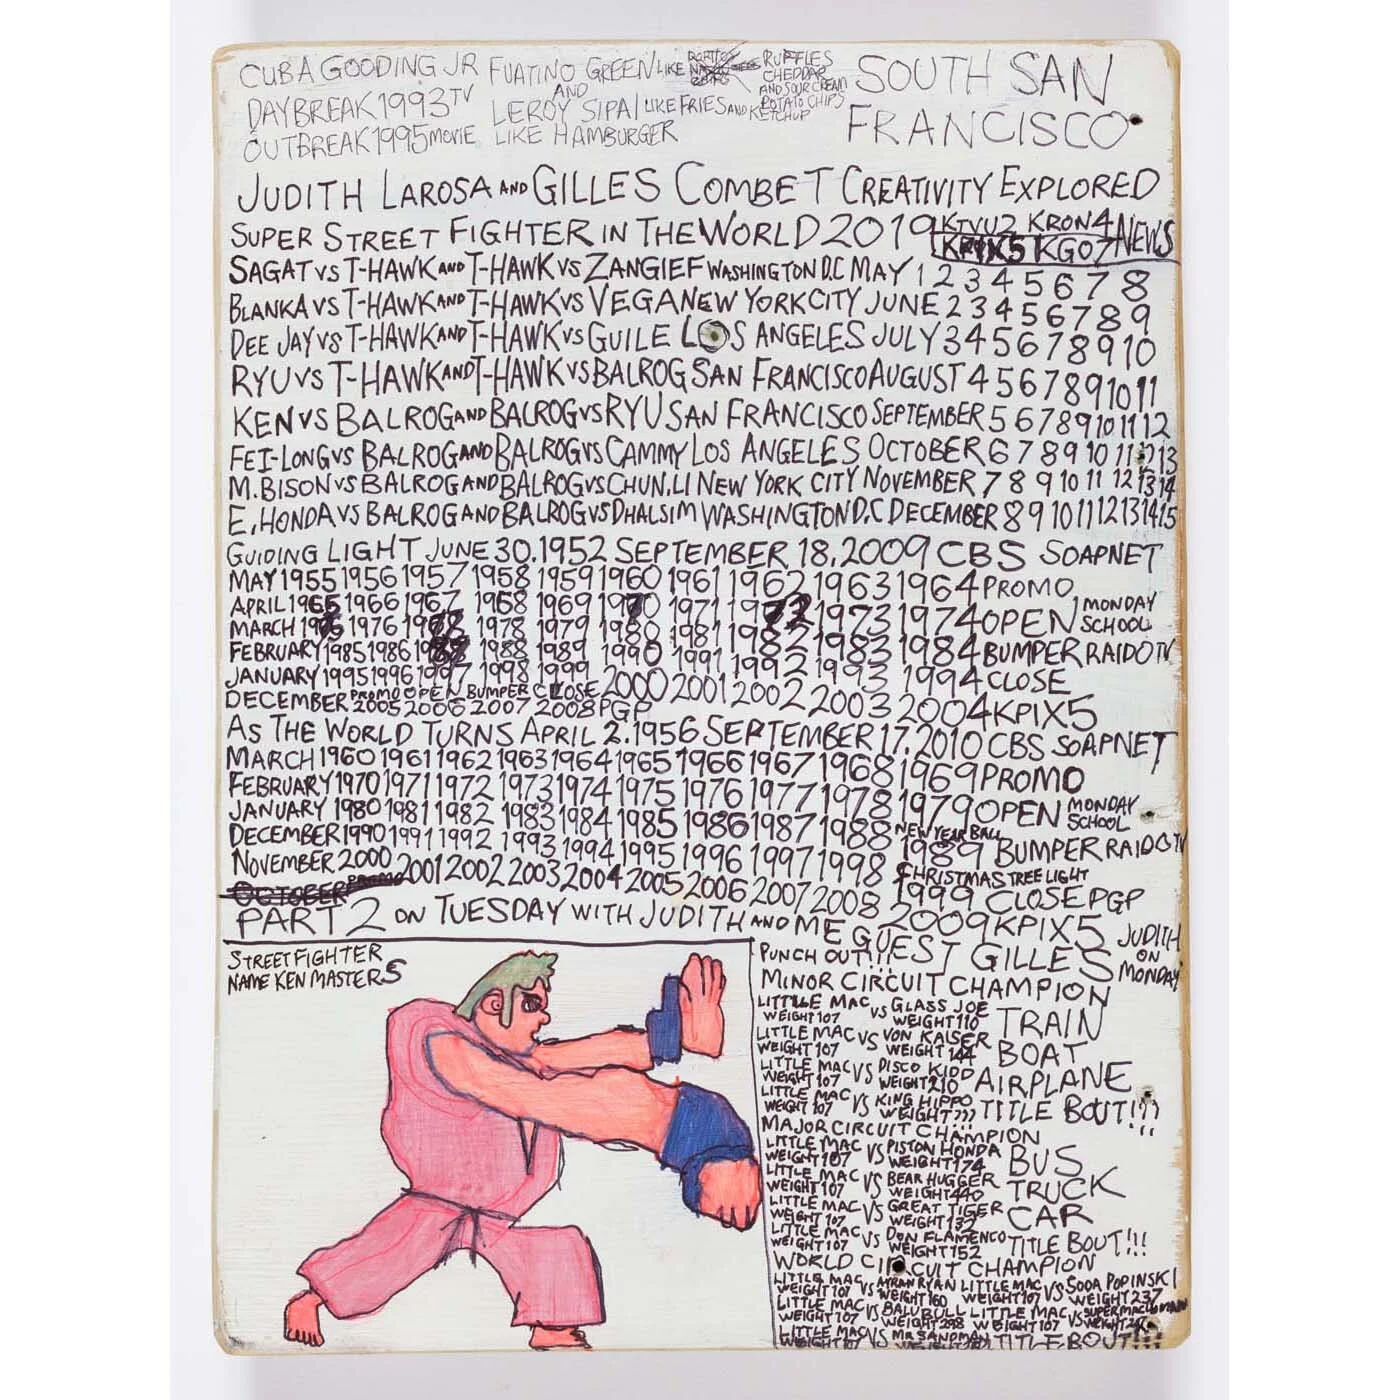 CUBA GOODING JR
DAYBREAK 1993 TV
OUTBREAK 1995 MOVIE
FUATINO GREEN LIKE RUFFLES CHEDDAR AND SOUR CREAM POTATO CHIPS
AND
LEROY SIPAI LIKE FRIES AND KETCHUP
LIKE HAMBURGER
SOUTH SAN
FRANCISCO
JUDITH LAROSA AND GILLES COMBET CREATIVITY EXPLORED
SUPER STREET FIGHTER IN THE WORLD 2019 KTVU2 KRON4 KPIX5 KGO7 NEWS
SAGAT VS T-HAWK AND T-HAWK VS ZANGIEF WASHINGTON D.C MAY 1 2 3 4 5 6 7 8
BLANKA VS T-HAWK AND T-HAWK VS VEGA NEW YORK CITY JUNE 2 3 4 5 6 7 8 9
DEE JAY VS T-HAWK AND T-HAWK VS GUILE LOS ANGELES JULY 3 4 5 6 7 8 9 10
RYU VS T-HAWK AND T-HAWK VS BALROG SAN FRANCISCO AUGUST 4 5 6 7 8 9 10 11
KEN VS BALROG AND BALROG VS RYU SAN FRANCISCO SEPTEMBER 5 6 7 8 9 10 11 12
FEI-LONG VS BALROG AND BALROG VS CAMMY LOS ANGELES OCTOBER 6 7 8 9 10 11 12 13
M.BISON VS BALROG AND BALROG VS CHUN.LI NEW YORK CITY NOVEMBER 7 8 9 10 11 12 13 14
E.HONDA VS BALROG AND BALROG VS DHALSIM WASHINGTON D.C DECEMBER 8 9 10 11 12 13 14 15
GUIDING LIGHT JUNE 30.1952 SEPTEMBER 18.2009 CBS SOAPNET
MAY 1955 1956 1957 1958 1959 1960 1961 1962 1963 1964 PROMO
APRIL 1965 1966 1967 1968 1969 1970 1971 1972 1973 1974 OPEN MONDAY SCHOOL
MARCH 1975 1976 1977 1978 1979 1980 1981 1982 1983 1984 BUMPER RAIDO TV
FEBRUARY 1985 1986 1987 1988 1989 1990 1991 1992 1993 1994 CLOSE
JANUARY 1995 1996 1997 1998 1999 2000 2001 2002 2003 2004 KPIX5
DECEMBER PROMO OPEN BUMPER CLOSE
2005 2006 2007 2008 PGP
AS THE WORLD TURNS APRIL 2.1956 SEPTEMBER 17.2010 CBS SOAPNET
MARCH 1960 1961 1962 1963 1964 1965 1966 1967 1968 1969 PROMO
FEBRUARY 1970 1971 1972 1973 1974 1975 1976 1977 1978 1979 OPEN MONDAY SCHOOL
JANUARY 1980 1981 1982 1983 1984 1985 1986 1987 1988 NEW YEAR BALL 1989 BUMPER RAIDO TV
DECEMBER 1990 1991 1992 1993 1994 1995 1996 1997 1998 CHRISTMAS TREE LIGHT 1999 CLOSE PGP
NOVEMBER 2000 2001 2002 2003 2004 2005 2006 2007 2008 2009 KPIX5
OCTOBER PROMO
PART 2 ON TUESDAY WITH JUDITH AND ME GUEST GILLES JUDITH ON MONDAY
STREET FIGHTER
NAME KEN MASTERS
PUNCH OUT!!!
MINOR CIRCUIT CHAMPION
LITTLE MAC VS GLASS JOE
WEIGHT 107 WEIGHT 110 TRAIN
LITTLE MAC VS VON KAISER
WEIGHT 107 WEIGHT 144 BOAT
LITTLE MAC VS DISCO KIDD
WEIGHT 107 WEIGHT 210 AIRPLANE
LITTLE MAC VS KING HIPPO
WEIGHT 107 WEIGHT ??? TITLE BOUT!!!
MAJOR CIRCUIT CHAMPION
LITTLE MAC VS PISTON HONDA
WEIGHT 107 WEIGHT 174 BUS
LITTLE MAC VS BEAR HUGGER
WEIGHT 107 WEIGHT 440 TRUCK
LITTLE MAC VS GREAT TIGER
WEIGHT 107 WEIGHT 132 CAR
LITTLE MAC VS DON FLAMENCO
WEIGHT 107 WEIGHT 152 TITLE BOUT!!!
WORLD CIRCUIT CHAMPION
LITTLE MAC VS RYAN LITTLE MAC VS SODA POPINSKI
WEIGHT 107 WEIGHT 160 WEIGHT 107 WEIGHT 237
LITTLE MAC VS BALD BULL LITTLE MAC VS SUPER MACHO MAN
WEIGHT 107 WEIGHT 298 WEIGHT 107 WEIGHT
LITTLE MAC VS MR SANDMAN TITLE BOUT!!!
WEIGHT 107 WEIGHT